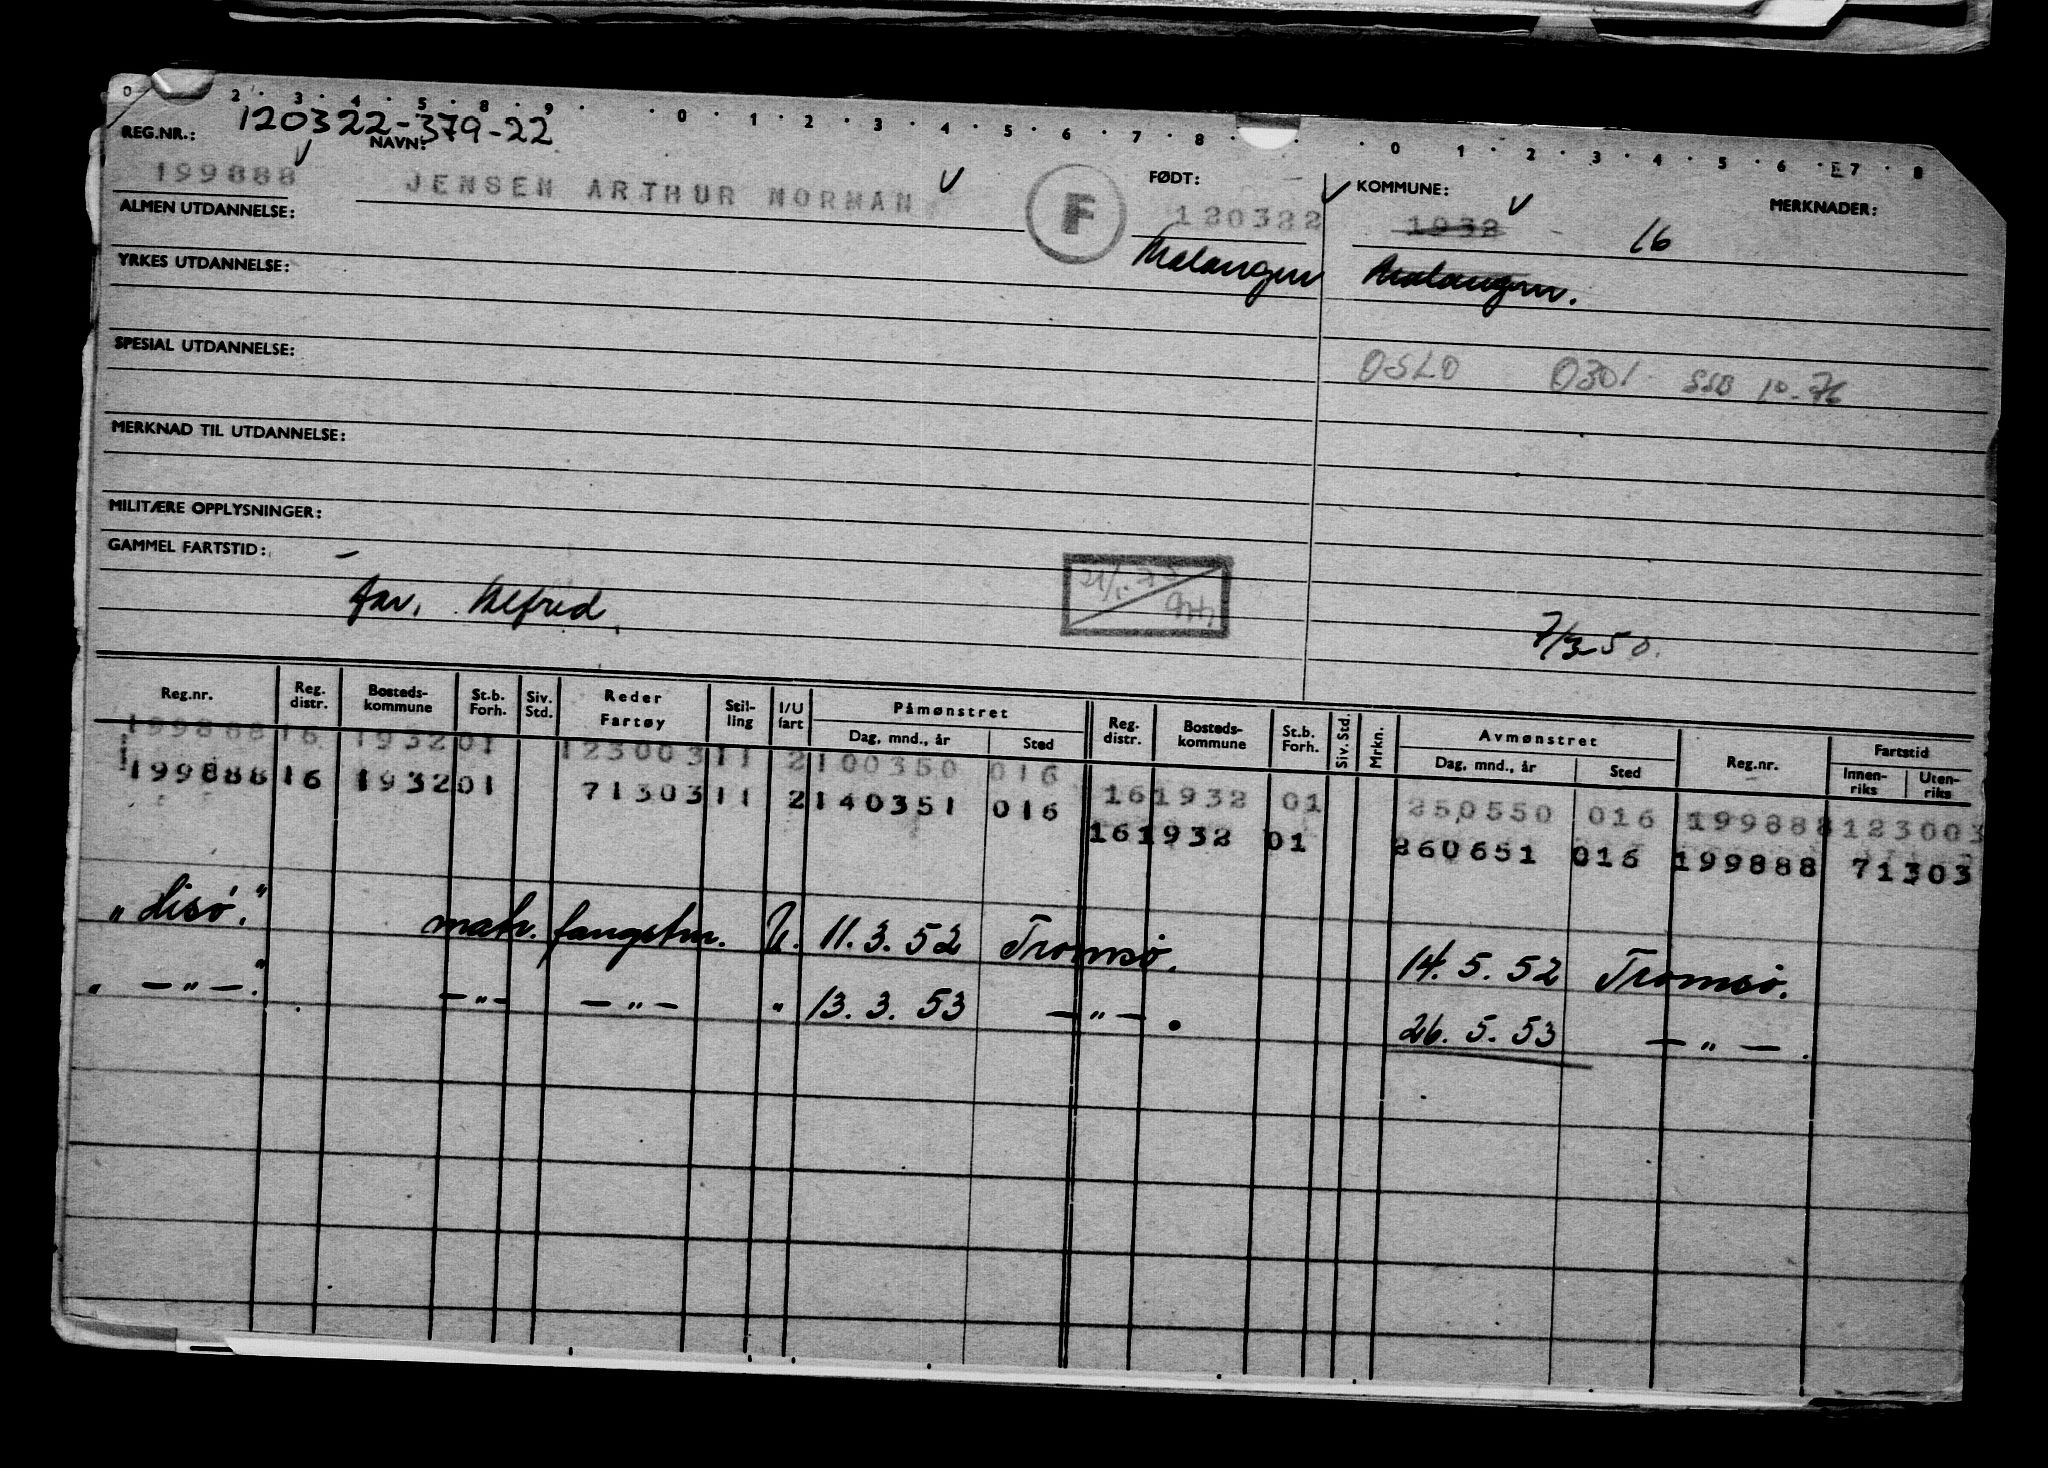 0 2 . 3 . 4 . 5 . 8 . 9 . . 0 . 1 . 2 . 3 . 4 . 5 . 6 . 7 . 8 . . . 0 . 1 . 2 . 3 . 4 . 5 . 6 . 7 . 8
120322-379-22
REG.NR.: NAVN: FØDT: KOMMUNE: MERKNADER:
199888 JENSEN ARTHUR NORMAN F 120322 1932 16
ALMEN UTDANNELSE:
Malangen Malangen.
YRKES UTDANNELSE:
SPESIAL UTDANNELSE:
OSLO 0301 SSB 10-76
MERKNAD TIL UTDANNELSE:
MILITÆRE OPPLYSNINGER:
GAMMEL FARTSTID: -
far, Alfred.
7/3 50.
Reg.nr. Reg. distr. Bosteds-kommune St.b. Forh. Siv. Std. Reder Fartøy Stil-ling I/U fart Påmønstret Dag, mnd., år Sted Reg. distr. Bosteds-kommune St.b. Forh. Siv. Std. Mrkn. Avmønstret Dag, mnd., år Sted Reg.nr. Fartstid Innen-riks Uten-riks
199888 16 1932 01 12300311 2 100350 016 16 1932 01 250550 016 199888 123003
199888 16 1932 01 7130311 2 140351 016 16 1932 01 260651 016 199888 71303
"Lisø." matr. fangstm. U. 11.3.52 Tromsø. 14.5.52 Tromsø.
" — " —." — " — — " — " 13.3.53 — " — . 26.5.53 — " — .